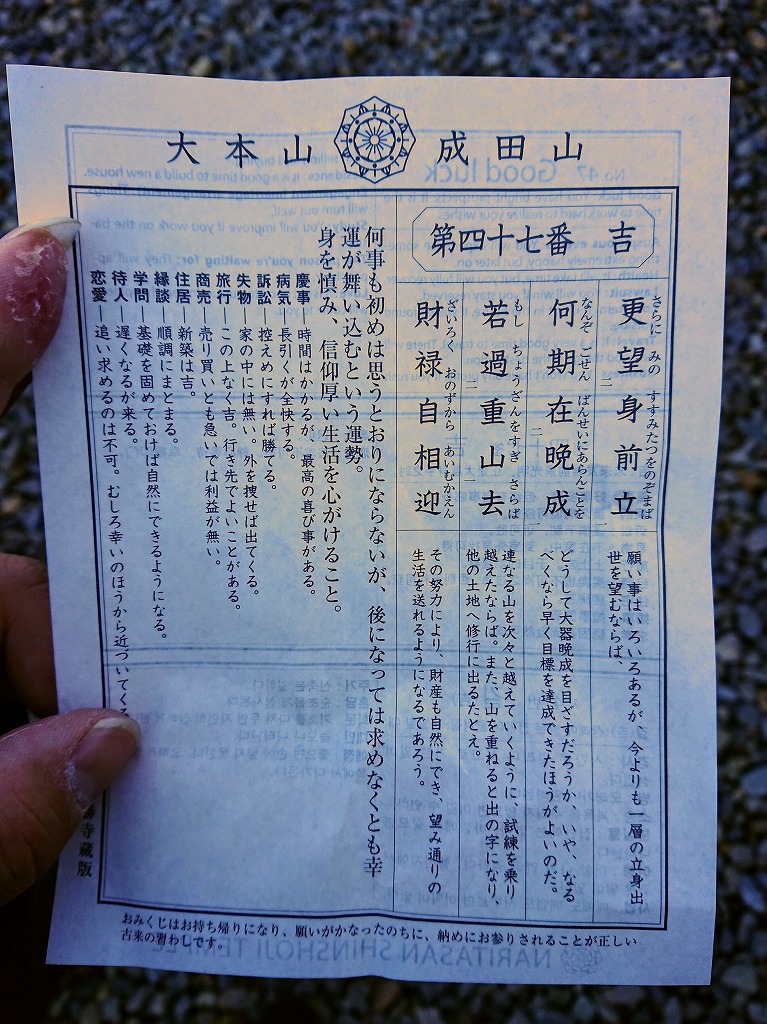 大本山 成田山
第四十七番 吉
更望身前立
さらに みの すすみたつをのぞまば
願い事はいろいろあるが、今よりも一層の立身出
世を望むならば、
何期在晩成
なんぞ ごせん ばんせいにあらんことを
どうして大器晩成を目ざすだろうか、いや、なる
べくなら早く目標を達成できたほうがよいのだ。
若過重山去
もし じょうざんをすぎ さらば
連なる山を次々と越えていくように、試練を乗り
越えたならば。また、山を重ねると出の字になり、
他の土地へ修行に出るたとえ。
財禄自相迎
ざいろく おのずから あいむかえん
その努力により、財産も自然にでき、望み通りの
生活を送れるようになるであろう。
何事も初めは思うとおりにならないが、後になっては求めなくとも幸
運が舞い込むという運勢。
身を慎み、信仰厚い生活を心がけること。
慶事 時間はかかるが、最高の喜び事がある。
病気 長引くが全快する。
訴訟―控えめにすれば勝てる。
失物―家の中には無い。外を捜せば出てくる。
旅行―この上なく吉。行き先でよいことがある。
商売―売り買いとも急いでは利益が無い。
住居―新築は吉。
縁談―順調にまとまる。
学問―基礎を固めておけば自然にできるようになる。
待人―遅くなるが来る。
恋愛―追い求めるのは不可。むしろ幸いのほうから近づいてくる
寺蔵版
おみくじはお持ち帰りになり、願いがかなったのちに、納めにお参りされることが正しい
古来の習わしです。